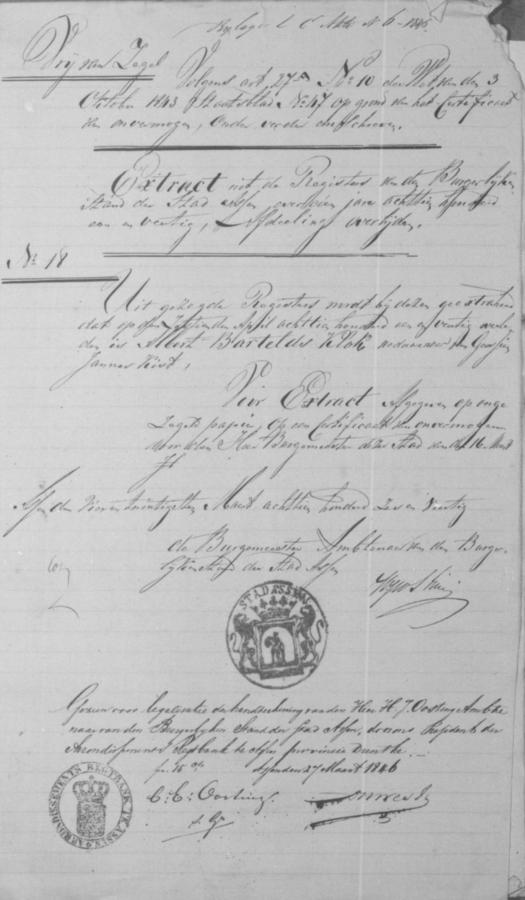 Bijlage N 6 - 1846
Vrij van Zegel
Volgens art. 27 No 10 der Wet van den 3
October 1843 Staatsblad No 47 op grond van het Certificaat
van onvermogen, onder verder omschreven.
Extract uit de Registers van den Burgerlijken
stand der Stad Assen, over den jare achttien honderd
een en veertig, Afdeeling overlijden.
No 18
Uit gezegde Registers wordt bij dezen geextraheerd
dat op den April achttien honderd een en veertig overle
den is Albert Bartelds Kok
Jannes
Voor Extract Afgegeven op onge
Zegeld papier, op een certificaat van onvermogen
door den Heer Burgemeester dezer Stad van den 16 Maart
Jl
Assen den Vier en twintigsten Maart achttien honderd Zes en Veertig
de Burgemeester Ambtenaar van den Burger
lijken stand der Stad Assen
STAD ASSEN
Gezien voor legalisatie der handteekening van den Heer H. J. Oosting Ambte
naar van den Burgerlijken Stand der stad Assen, door ons President der
Arrondissements Regtbank te Assen provincie Drenthe
Assen den 27 Maart 1846
ARRONDISSEMENTS REGTBANK TE ASSEN
C: C: Oosting